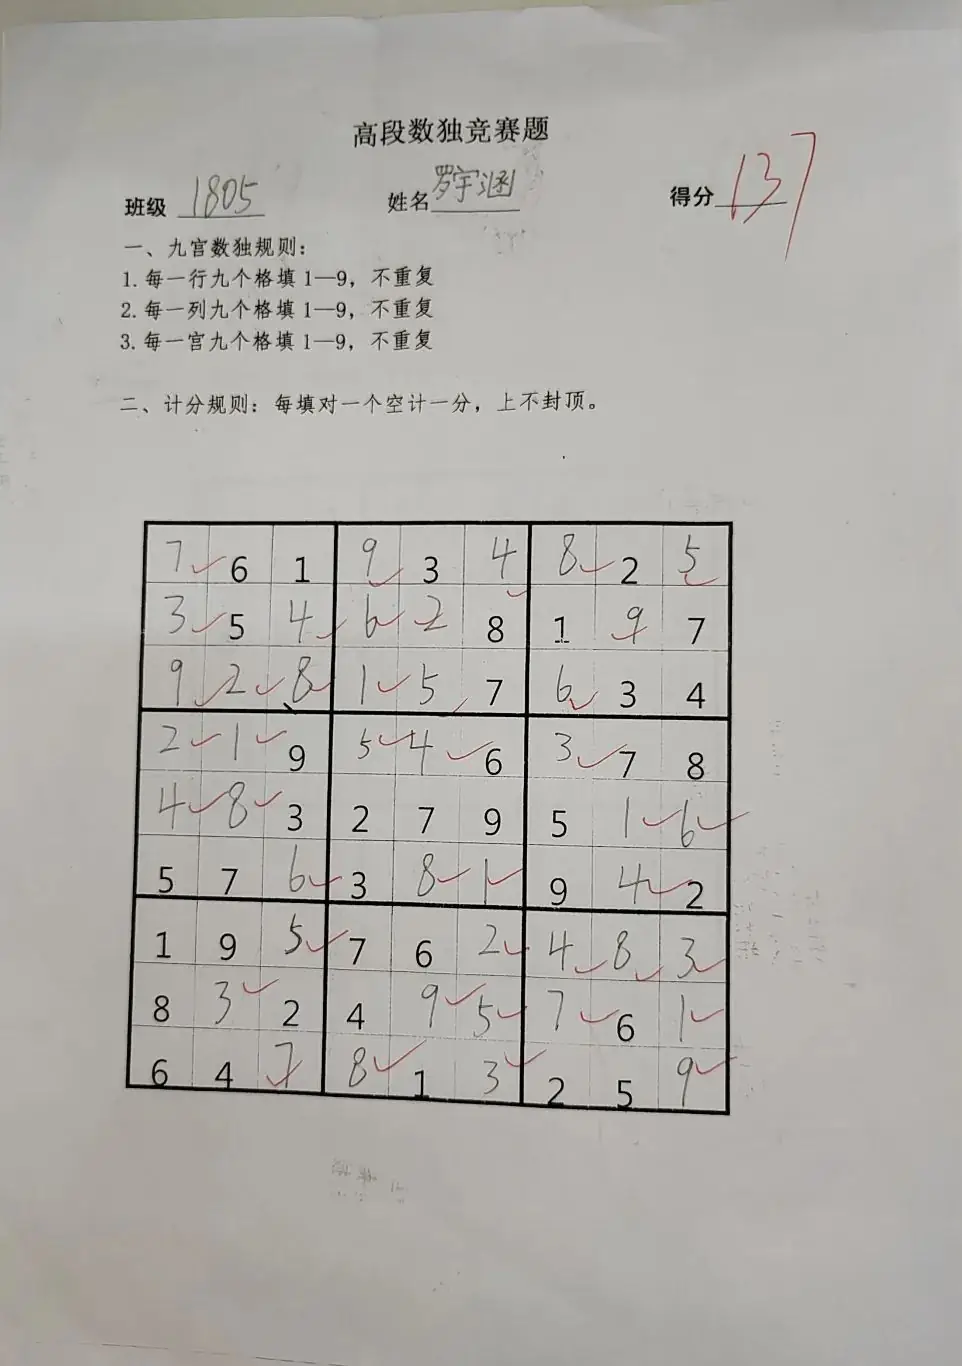 高段数独竞赛题
班级 1805 姓名 罗宇涵 得分 137
一、九宫数独规则：
1.每一行九个格填1—9，不重复
2.每一列九个格填1—9，不重复
3.每一宫九个格填1—9，不重复
二、计分规则：每填对一个空计一分，上不封顶。
7 6 1 9 3 4 8 2 5
3 5 4 6 2 8 1 9 7
9 2 8 1 5 7 6 3 4
2 1 9 5 4 6 3 7 8
4 8 3 2 7 9 5 1 6
5 7 6 3 8 1 9 4 2
1 9 5 7 6 2 4 8 3
8 3 2 4 9 5 7 6 1
6 4 7 8 1 3 2 5 9